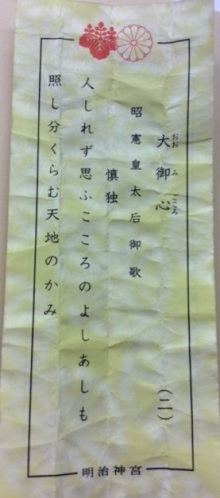 大御心 (二)
おおみごころ
昭憲皇太后御歌
慎独
人しれず思ふこころのよしあしも
照し分くらむ天地のかみ
明治神宮